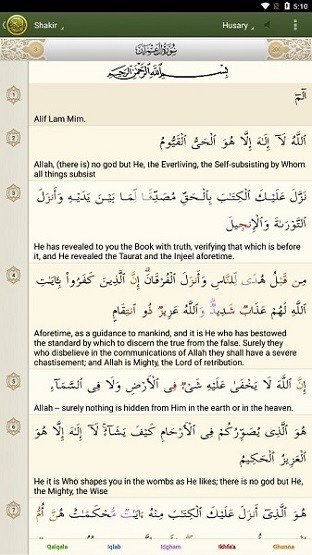 5:10
Shakir
Husary
3
سُورَةُ آلِ عِمْرَانَ
200
بِسْمِ اللَّهِ الرَّحْمَٰنِ الرَّحِيمِ
1
الٓمٓ
Alif Lam Mim.
2
اللَّهُ لَآ إِلَٰهَ إِلَّا هُوَ الْحَىُّ الْقَيُّومُ
Allah, (there is) no god but He, the Everliving, the Self-subsisting by Whom
all things subsist
3
نَزَّلَ عَلَيْكَ الْكِتَٰبَ بِالْحَقِّ مُصَدِّقًا لِّمَا بَيْنَ يَدَيْهِ وَأَنزَلَ
التَّوْرَىٰةَ وَالْإِنجِيلَ
He has revealed to you the Book with truth, verifying that which is before
it, and He revealed the Taurat and the Injeel aforetime.
4
مِن قَبْلُ هُدًى لِّلنَّاسِ وَأَنزَلَ الْفُرْقَانَ ۗ إِنَّ الَّذِينَ كَفَرُوا۟ بِـَٔايَٰتِ
اللَّهِ لَهُمْ عَذَابٌ شَدِيدٌ ۗ وَاللَّهُ عَزِيزٌ ذُو انتِقَامٍ
Aforetime, as a guidance to mankind, and it is He who has bestowed
the standard by which to discern the true from the false. Surely they
who disbelieve in the communications of Allah they shall have a severe
chastisement; and Allah is Mighty, the Lord of retribution.
5
إِنَّ اللَّهَ لَا يَخْفَىٰ عَلَيْهِ شَىْءٌ فِى الْأَرْضِ وَلَا فِى السَّمَآءِ
Allah – surely nothing is hidden from Him in the earth or in the heaven.
6
هُوَ الَّذِى يُصَوِّرُكُمْ فِى الْأَرْحَامِ كَيْفَ يَشَآءُ ۚ لَآ إِلَٰهَ إِلَّا هُوَ
الْعَزِيزُ الْحَكِيمُ
He it is Who shapes you in the wombs as He likes; there is no god but He,
the Mighty, the Wise
7
هُوَ الَّذِىٓ أَنزَلَ عَلَيْكَ الْكِتَٰبَ مِنْهُ ءَايَٰتٌ مُّحْكَمَٰتٌ هُنَّ أُمُّ
Qalqala Iqlab Idgham Ikhfaa Ghunna